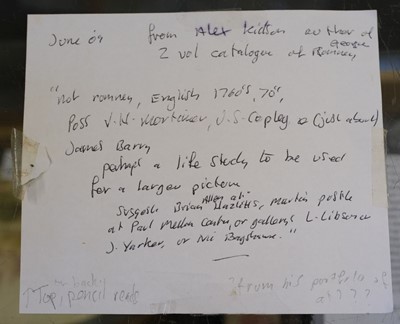 June 09 from Alex Kidson author of
2 vol catalogue of George Romney
"Not romney, English 1760's, 70's,
Poss J.H. Mortimer, J.S. Copley or (just about)
James Barry
perhaps a life study to be used
for a larger picture
suggests Brian Allen at Hazlitts, Martin Postle
at Paul Mellon Centre, or gallerys L. Libson
J. Yarker, or
"
↑ Top, pencil reads
from his portfolio of
? ? ?